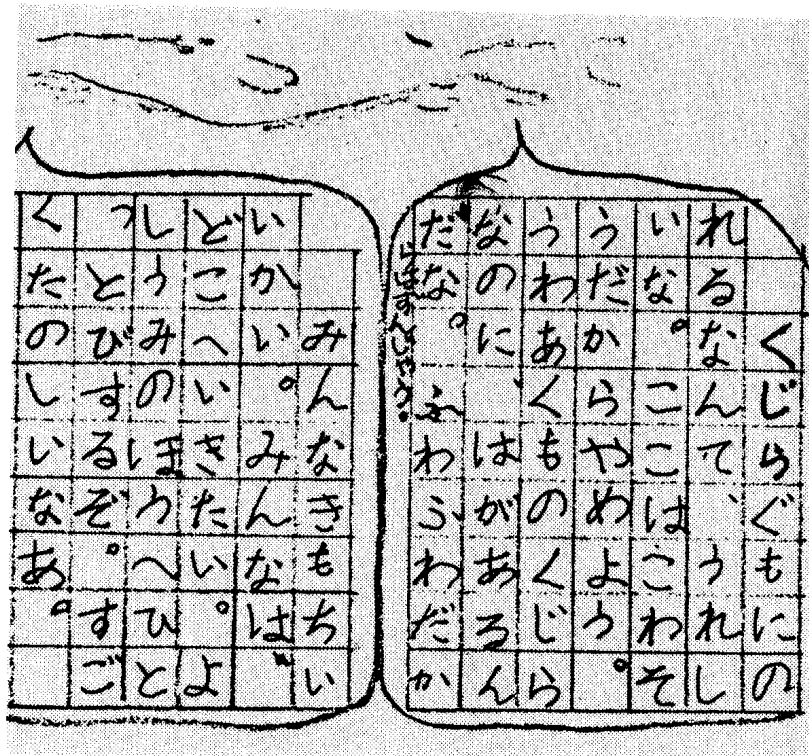 くじらぐもにの
れるなんて、うれし
いな。ここはこわそ
うだからやめよう。
うわあくものくじら
なのに、はがあるん
だな。ふわふわだか
みんなきもちい
いかい。みんなは、
どこへいきたい。よ
しうみのほうへひと
っとびするぞ。すご
くたのしいなあ。